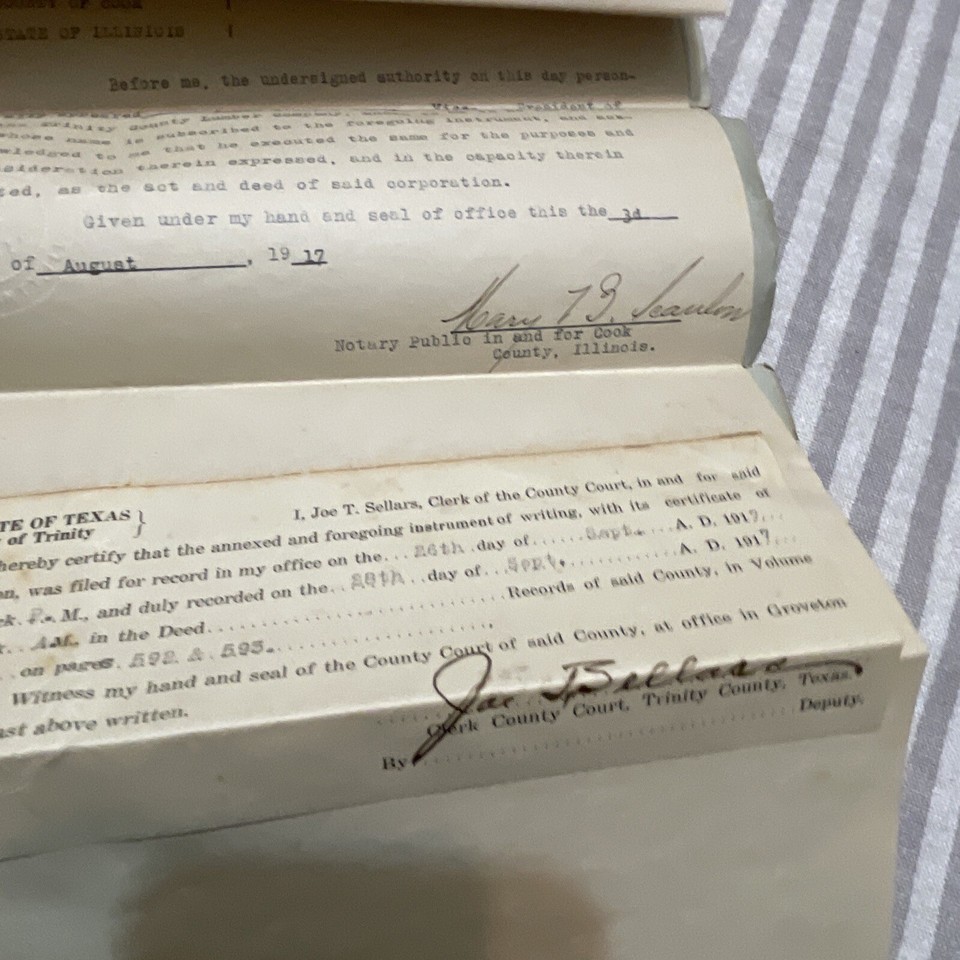 COUNTY OF COOK
STATE OF ILLINIOIS
Before me, the undersigned authority on this day person-
Vice President of
Trinity County Lumber
whose name is subscribed to the foregoing instrument, and
to me that he executed the same for the purposes and
therein expressed, and in the capacity therein
ted, as the act and deed of said corporation.
Given under my hand and seal of office this the 3d
of August, 1917
Mary B. Scanlon
Notary Public in and for Cook
County, Illinois.
TE OF TEXAS } I, Joe T. Sellars, Clerk of the County Court, in and for said
of Trinity
hereby certify that the annexed and foregoing instrument of writing, with its certificate of
on, was filed for record in my office on the...26th.day of......Sept....A. D. 1917...
ck. P. M., and duly recorded on the..29th..day of...Sept...........A. D. 1917...
AM. in the Deed..............................Records of said County, in Volume
on pages. 592 & 593.
Witness my hand and seal of the County Court of said County, at office in Groveton
ast above written.
Joe T Sellars
Clerk County Court, Trinity County, Texas.
By..............................Deputy.